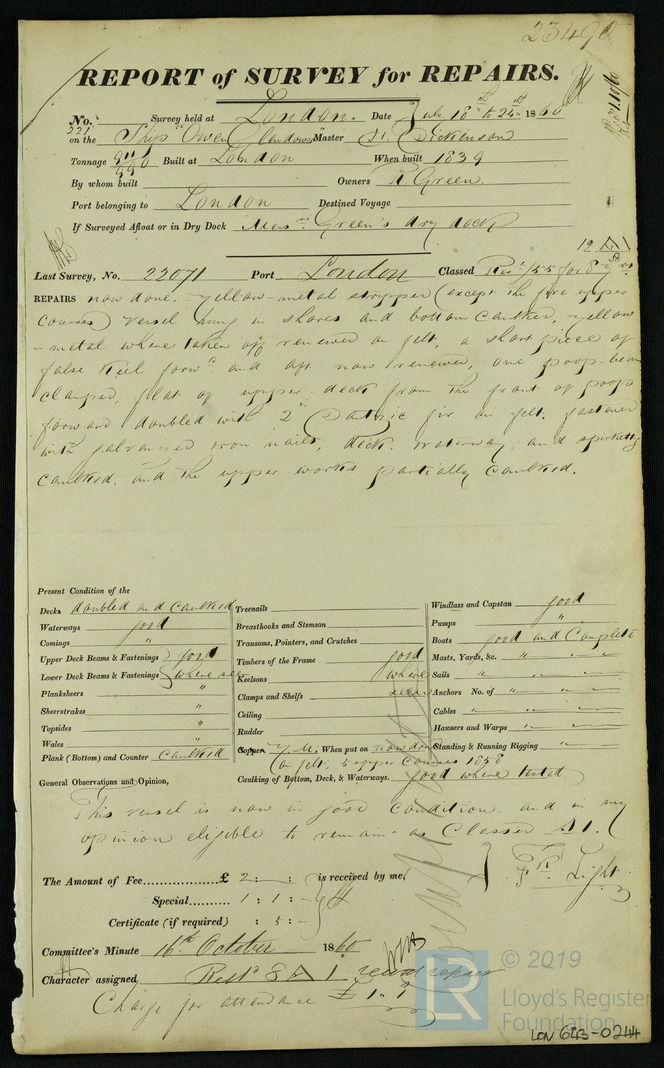 23490
REPORT of SURVEY for REPAIRS.
No. 221 Survey held at London. Date July 18th to 24th 1860
on the Ship "Owen Glendower" Master Dickinson
Tonnage Built at London When built 1839
By whom built Owners R. Green.
Port belonging to London Destined Voyage
If Surveyed Afloat or in Dry Dock Messrs Green's dry dock
Last Survey, No. 22071 Port London Classed Resd /55 for 8 yrs.
REPAIRS now done. Yellow-metal stripped (except the five upper
courses) vessel hung in shores and bottom caulked, yellow
-metal where taken off renewed on felt, a short piece of
false keel forwd and aft now renewed, one poop-beam
clamped, flat of upper deck from the front of poop
forward doubled with 2" Dantzic fir on felt. fastened
with galvanised iron nails, deck. waterway, and spirketting
caulked. and the upper works partially caulked.
Present Condition of the
Decks doubled and caulked
Waterways good
Comings "
Upper Deck Beams & Fastenings good
Lower Deck Beams & Fastenings where seen
Planksheers "
Sheerstrakes "
Topsides "
Wales "
Plank (Bottom) and Counter Caulked
Treenails
Breasthooks and Stemson
Transoms, Pointers, and Crutches
Timbers of the Frame good
Keelsons where
Clamps and Shelfs seen
Ceiling
Rudder
Copper Y.M. When put on now done
on felt, 5 upper courses 1858
Caulking of Bottom, Deck, & Waterways. good where tested.
Windlass and Capstan good
Pumps "
Boats good and Complete
Masts, Yards, &c. " " "
Sails " " "
Anchors No. of " " "
Cables " " "
Hawsers and Warps " " "
Standing & Running Rigging " " "
General Observations and Opinion,
This vessel is now in good condition. and in my
opinion eligible to remain as Classed A1.
The Amount of Fee £ 2 : : is received by me,
Special 1 : 1 : -
Certificate (if required) : 5 : -
Fk. Light
Committee's Minute 16th October 1860
Character assigned Restd 8 A 1
Charge for attendance £1.1
© 2019
LR
Lloyd's Register
Foundation
LON 643-0244